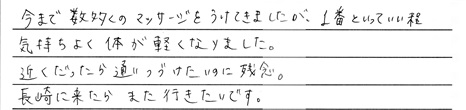 今まで数多くのマッサージをうけてきましたが、1番といっていい程
気持ちよく体が軽くなりました。
近くだったら通いつづけたいのに残念。
長崎に来たらまた行きたいです。